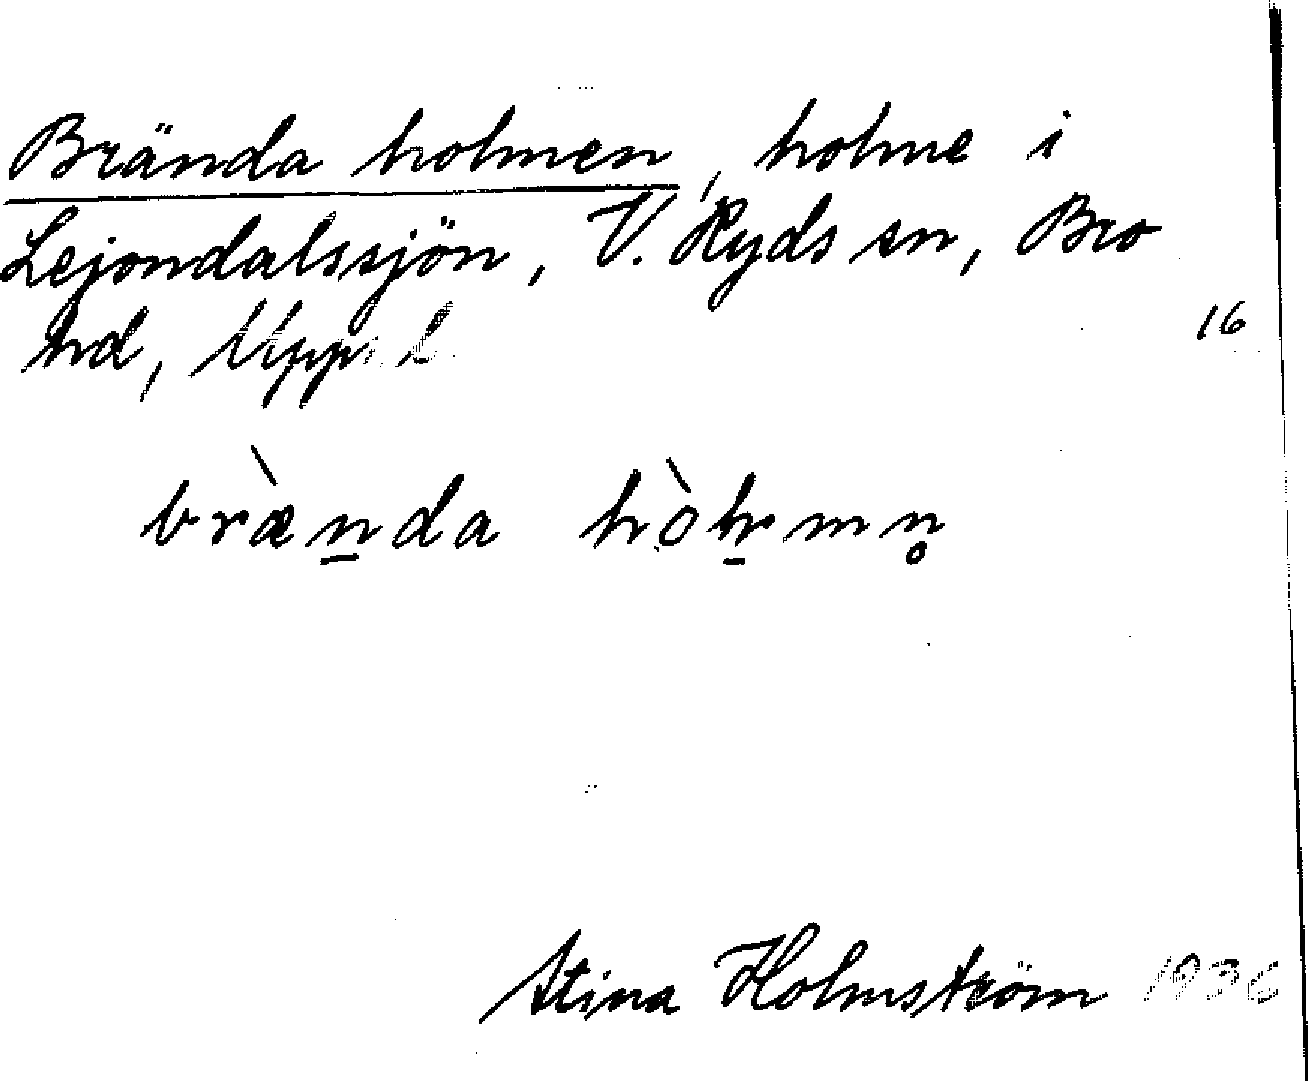 Brända holmen, holme i
Lejondalssjön, V. Ryds sn, Bro
hd, Uppl.
16
brànda hòlmn̥
Stina Holmström 1936